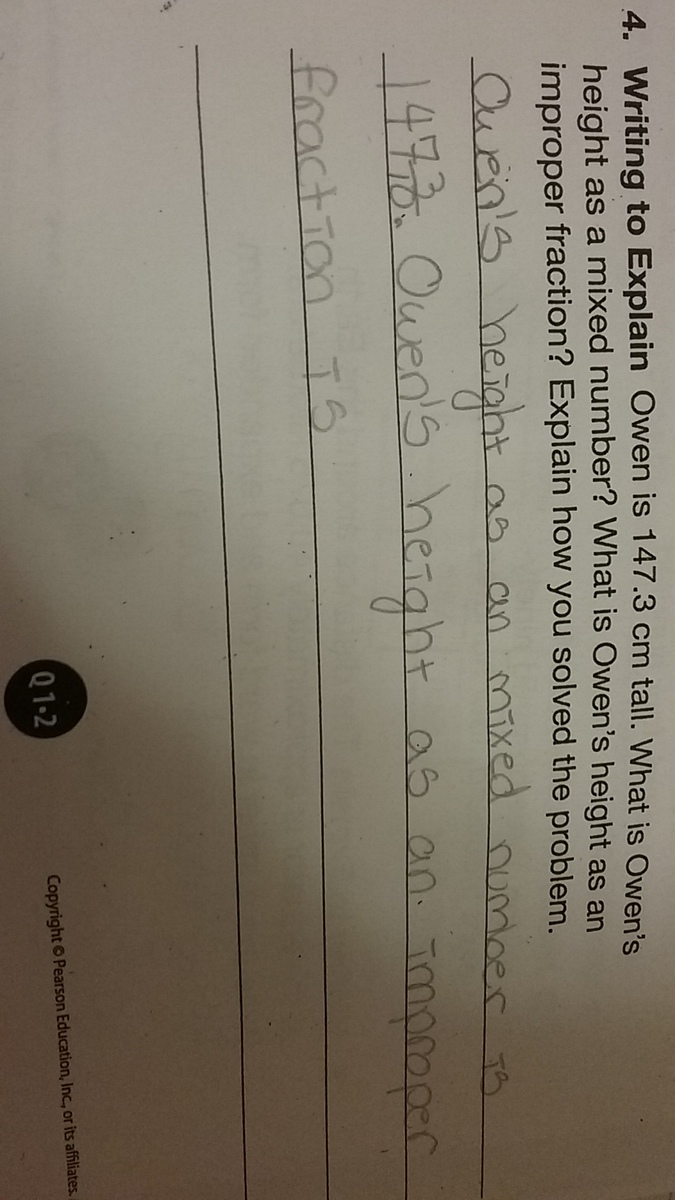 4. Writing to Explain Owen is 147.3 cm tall. What is Owen's
height as a mixed number? What is Owen's height as an
improper fraction? Explain how you solved the problem.
Owen's height as an mixed number is
147 3/10. Owen's height as an improper
fraction is
Q 1•2
Copyright © Pearson Education, Inc., or its affiliates.